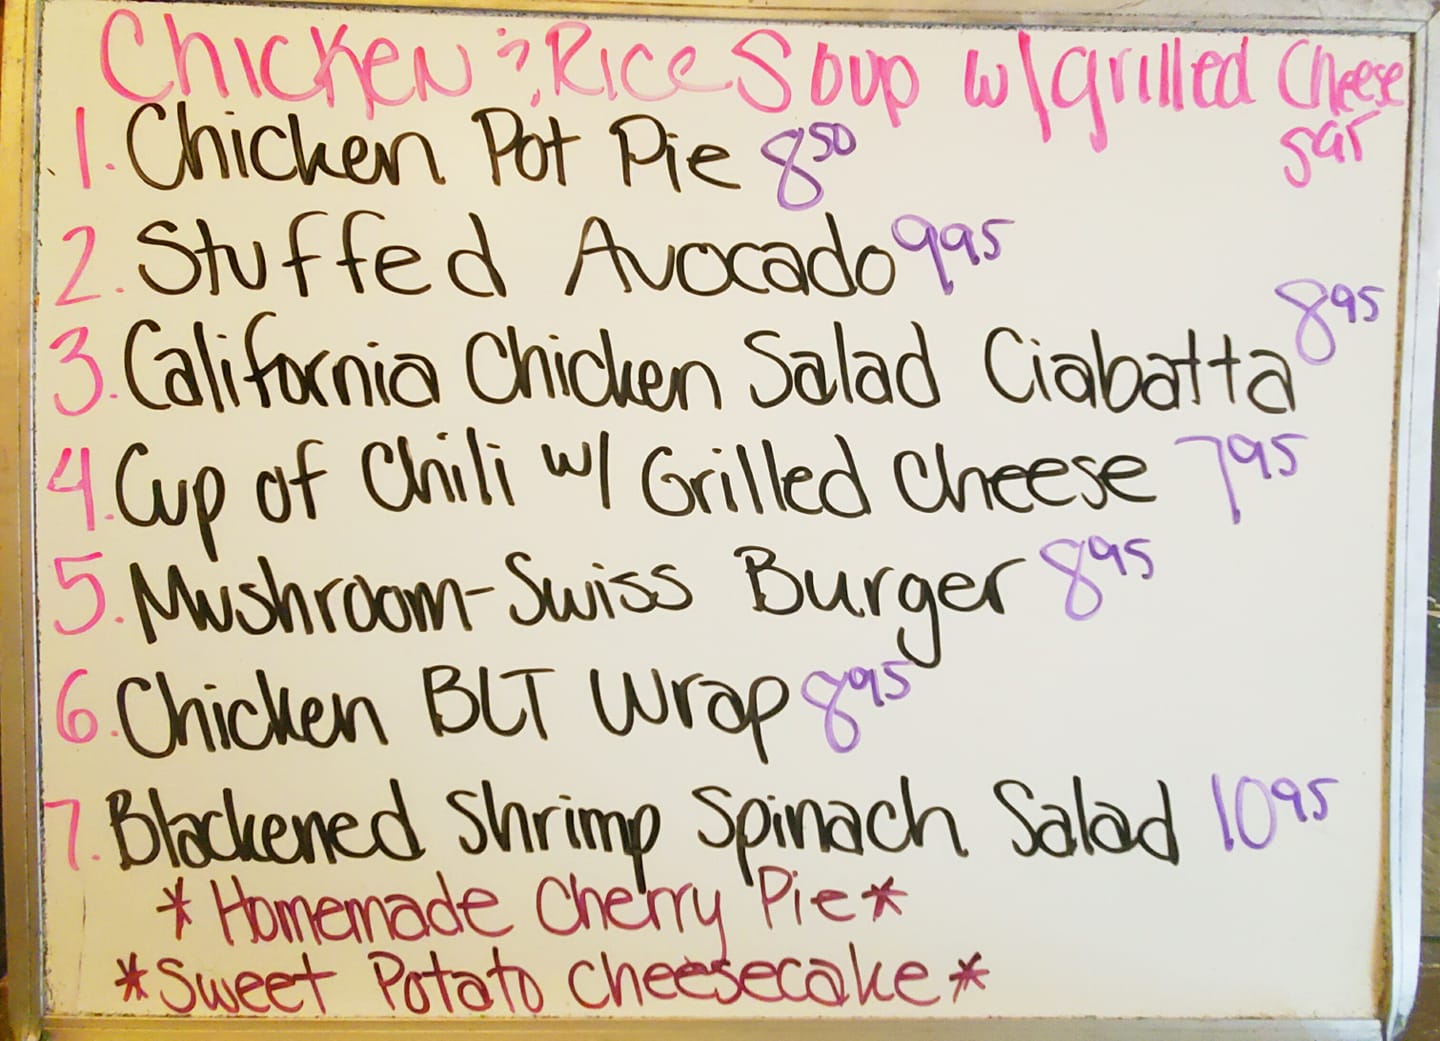 Chicken & Rice Soup w/grilled Cheese
1. Chicken Pot Pie 8⁵⁰
2. Stuffed Avocado 9⁹⁵
3. California Chicken Salad Ciabatta 8⁹⁵
4. Cup of Chili w/ Grilled Cheese 7⁹⁵
5. Mushroom-Swiss Burger 8⁹⁵
6. Chicken BLT Wrap 8⁹⁵
7. Blackened Shrimp Spinach Salad 10⁹⁵
*Homemade Cherry Pie*
*Sweet Potato Cheesecake*